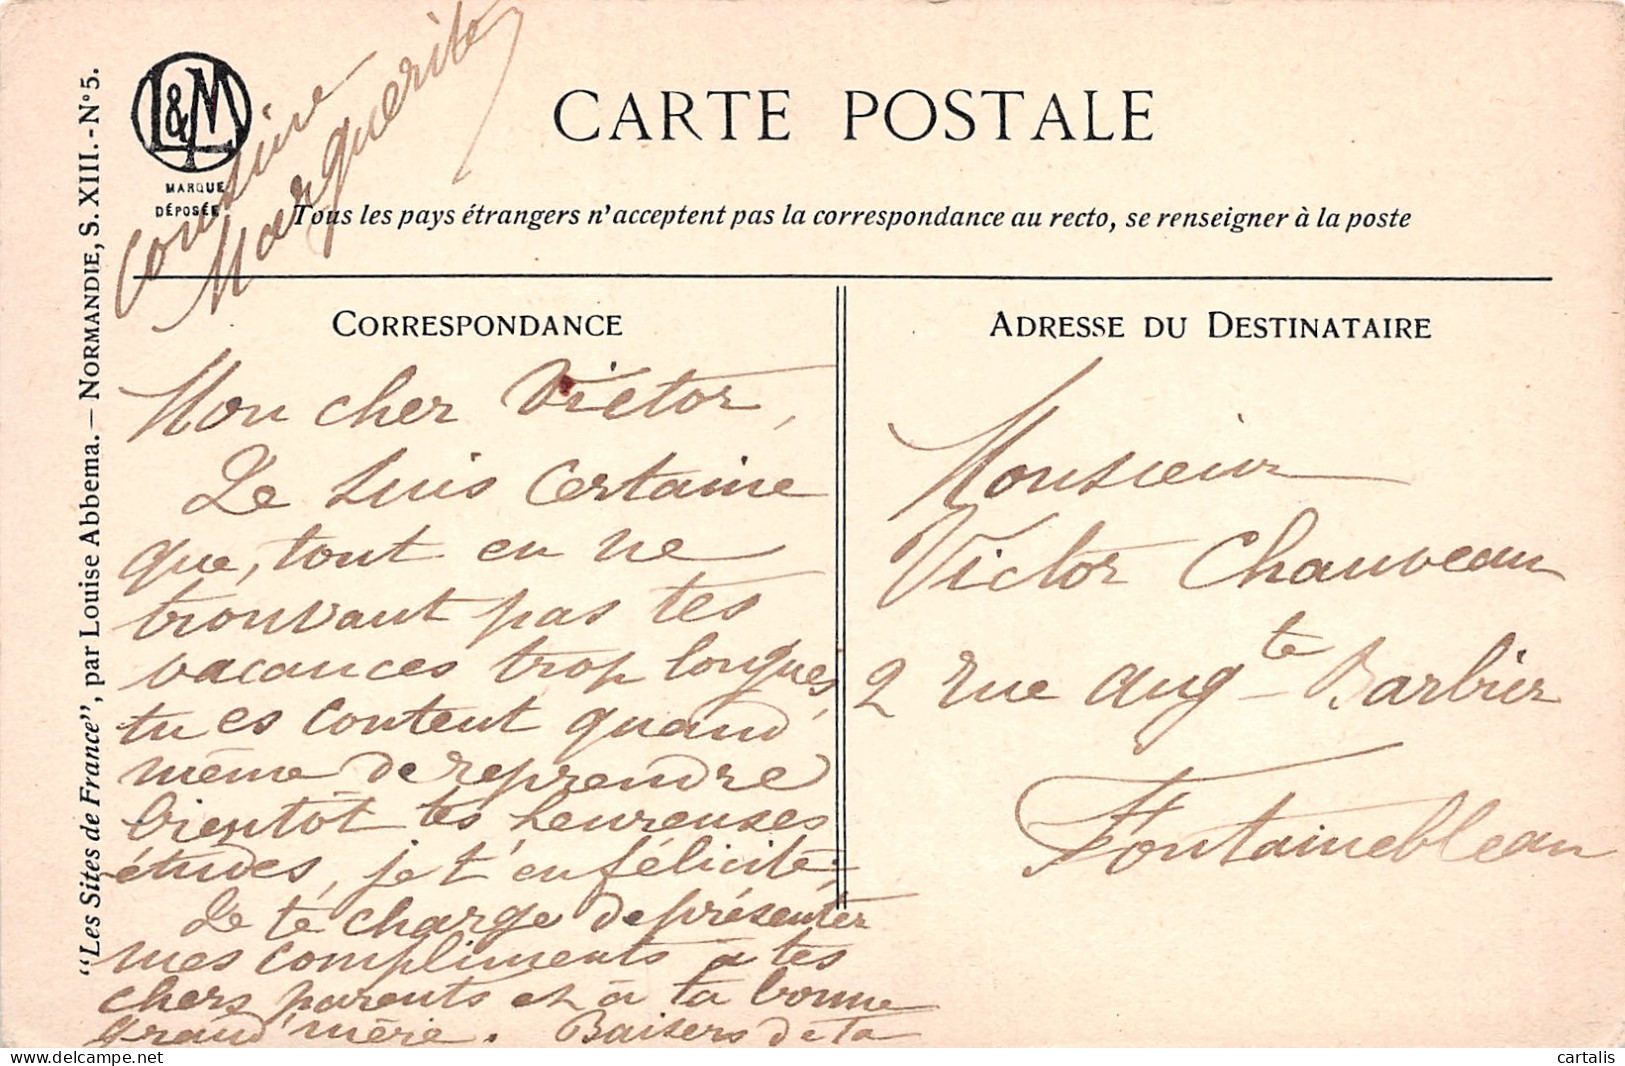 L&M
MARQUE
DÉPOSÉE
CARTE POSTALE
Tous les pays étrangers n'acceptent pas la correspondance au recto, se renseigner à la poste
"Les Sites de France", par Louise Abbema. — NORMANDIE, S. XIII. - N° 5.
CORRESPONDANCE
Mon cher Victor,
Je suis certaine
que, tout en ne
trouvant pas tes
vacances trop longues,
tu es content quand
même de reprendre
bientôt tes heureuses
études, je t'en félicite;
Je te charge de présenter
mes compliments à tes
chers parents et à ta bonne
grand'mère. Baisers de ta
cousine
Marguerite
ADRESSE DU DESTINATAIRE
Monsieur
Victor Chauveau
2 rue Augte Barbier
Fontainebleau
cartalis